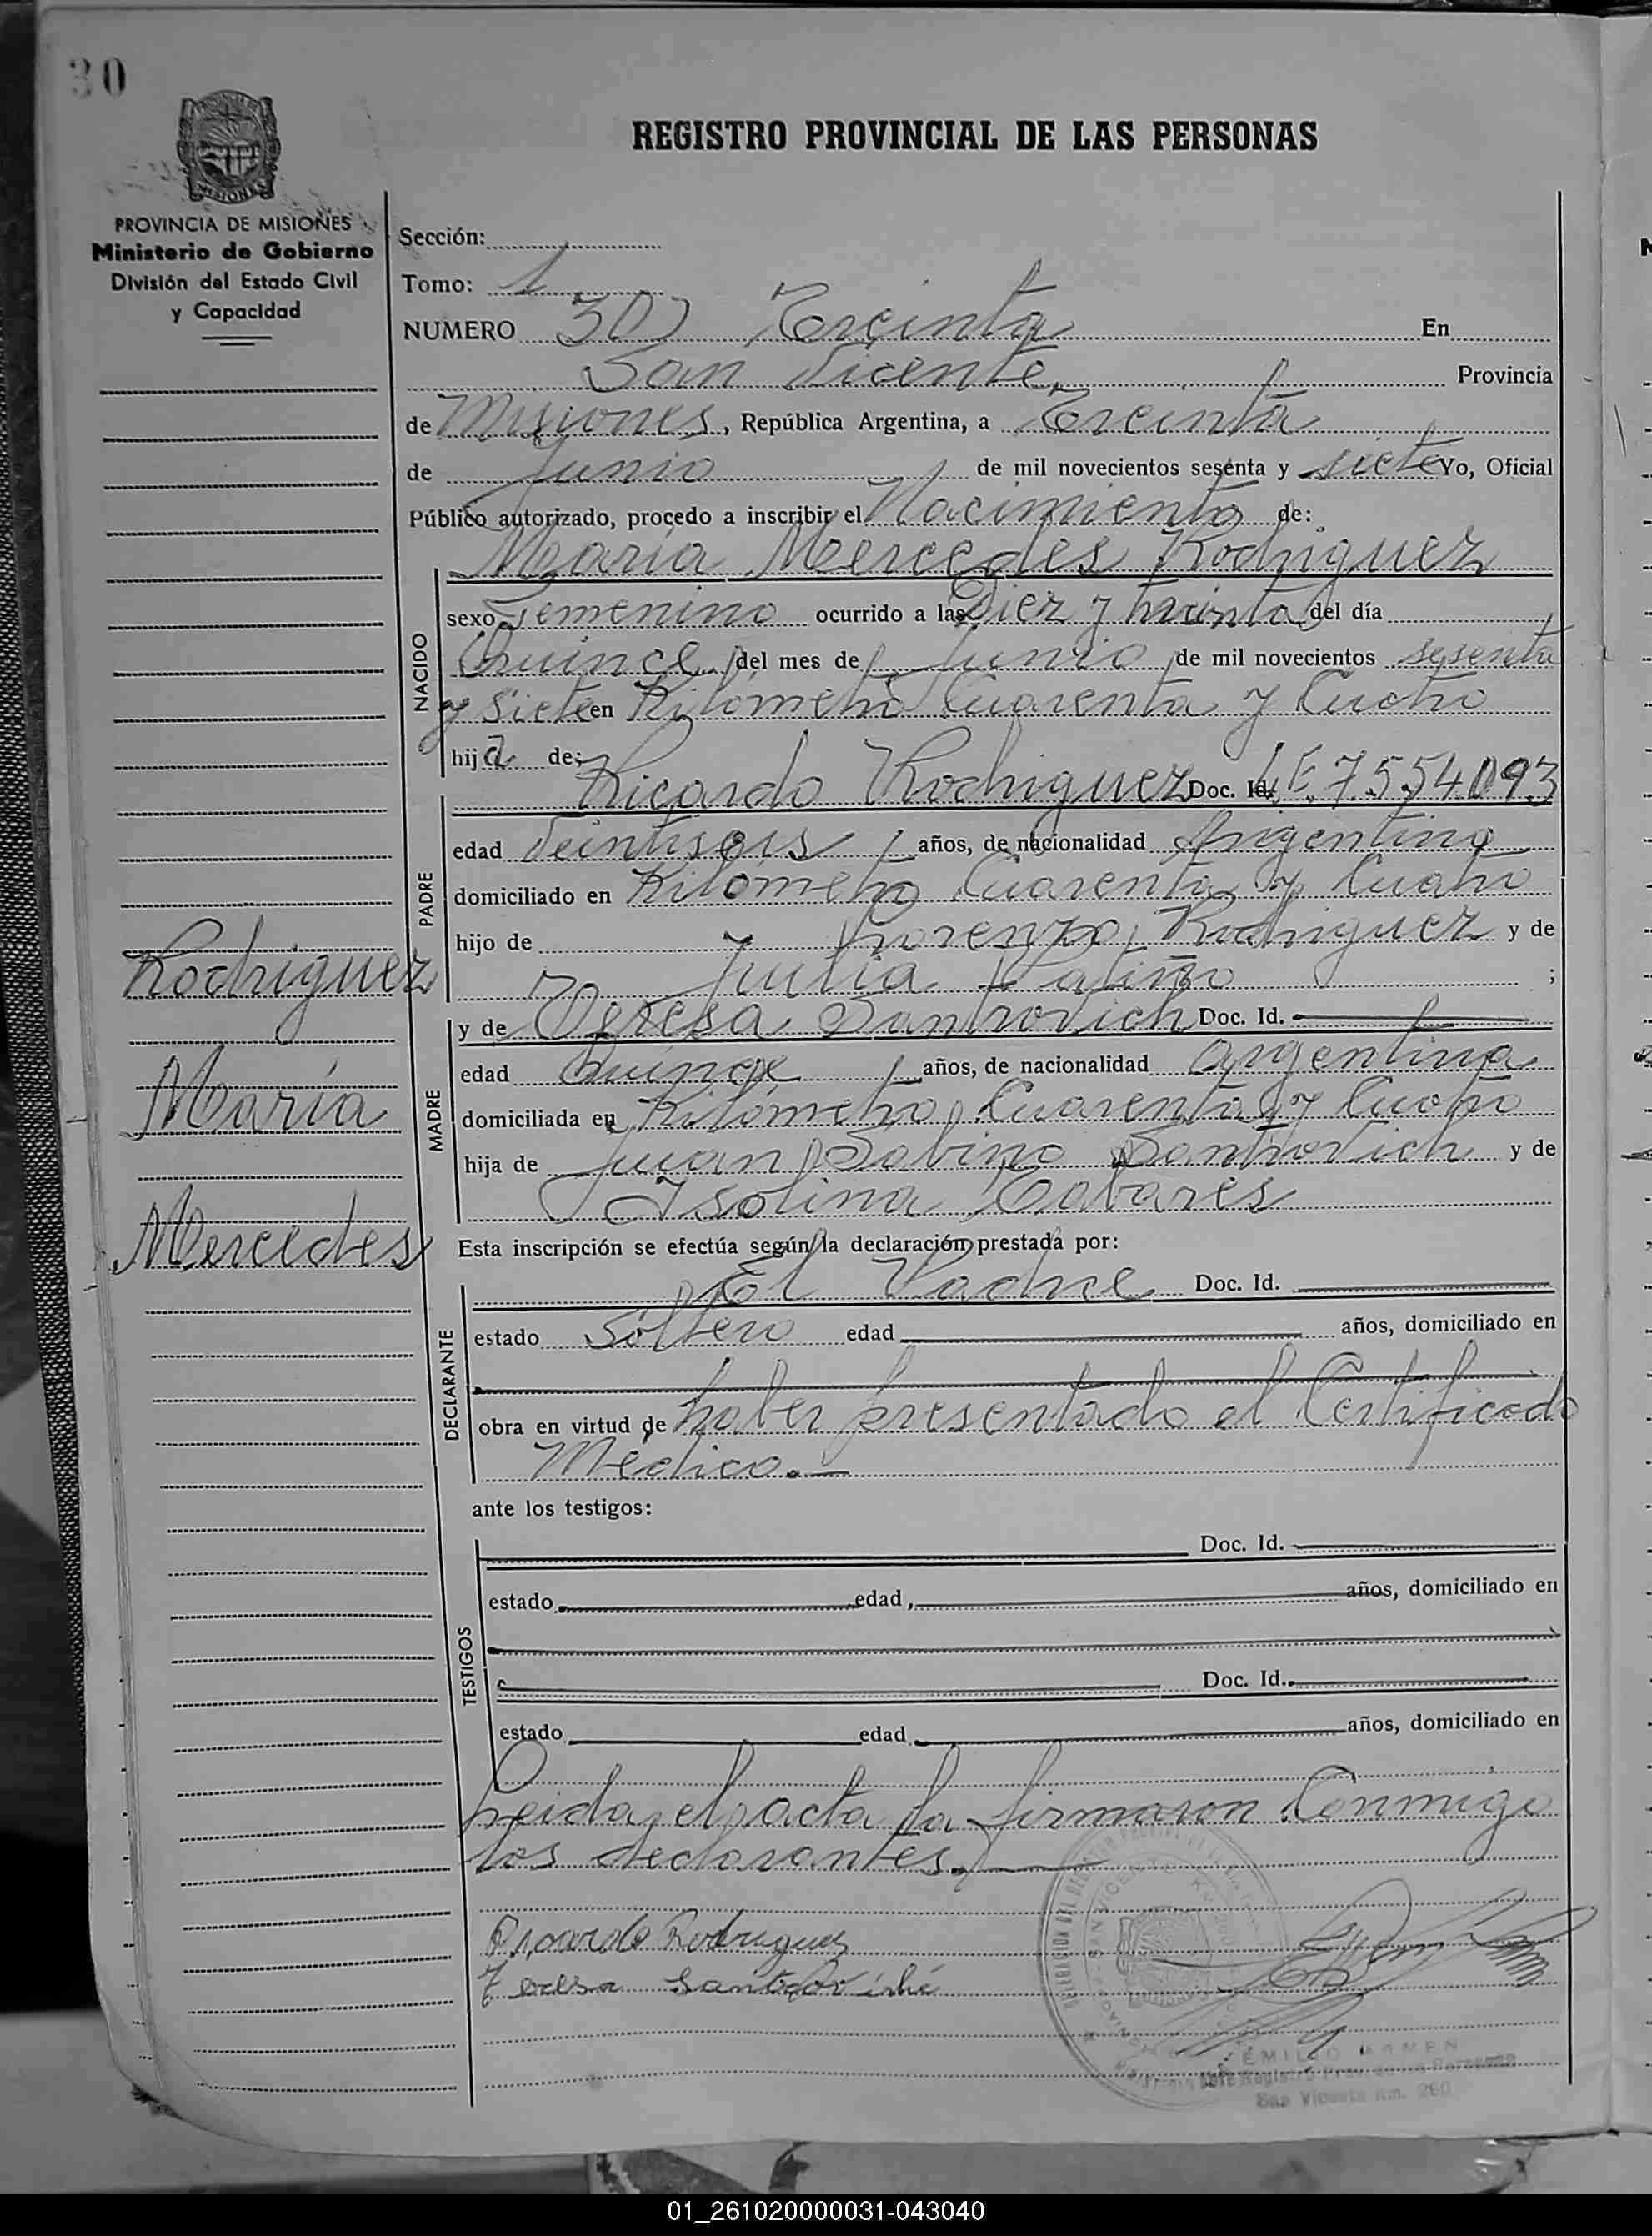 30
REGISTRO PROVINCIAL DE LAS PERSONAS
MISIONES
PROVINCIA DE MISIONES
Ministerio de Gobierno
División del Estado Civil
y Capacidad
Sección:
Tomo: 1
NUMERO 30) Treinta En
San Vicente, Provincia
de Misiones, República Argentina, a Treinta
de Junio de mil novecientos sesenta y siete Yo, Oficial
Público autorizado, procedo a inscribir el Nacimiento de:
María Mercedes Rodriguez
NACIDO
sexo Femenino ocurrido a las Diez y treinta del día
Quince del mes de Junio de mil novecientos sesenta
y siete en Kilómetro Cuarenta y Cuatro
hija de:
Ricardo Rodriguez Doc. Id. L.E. 7.554.093
PADRE
edad Veintiseis años, de nacionalidad Argentino
domiciliado en Kilómetro Cuarenta y Cuatro
hijo de Lorenzo Rodriguez y de
Julia ;
y de Teresa Santrovich Doc. Id.
MADRE
edad Quince años, de nacionalidad Argentina
domiciliada en Kilómetro Cuarenta y Cuatro
hija de Juan Sabino Santrovich y de
Isolina Tabares
Rodriguez
María
Mercedes
Esta inscripción se efectúa según la declaración prestada por:
El Padre Doc. Id.
DECLARANTE
estado Soltero edad años, domiciliado en
obra en virtud de haber presentado el Certificado
Medico.
ante los testigos:
TESTIGOS
Doc. Id.
estado edad años, domiciliado en
Doc. Id.
estado edad años, domiciliado en
Leida el acta la firmaron Conmigo
los declarantes.
Ricardo Rodriguez
Teresa
San Vicente Km. 260
01_261020000031-043040